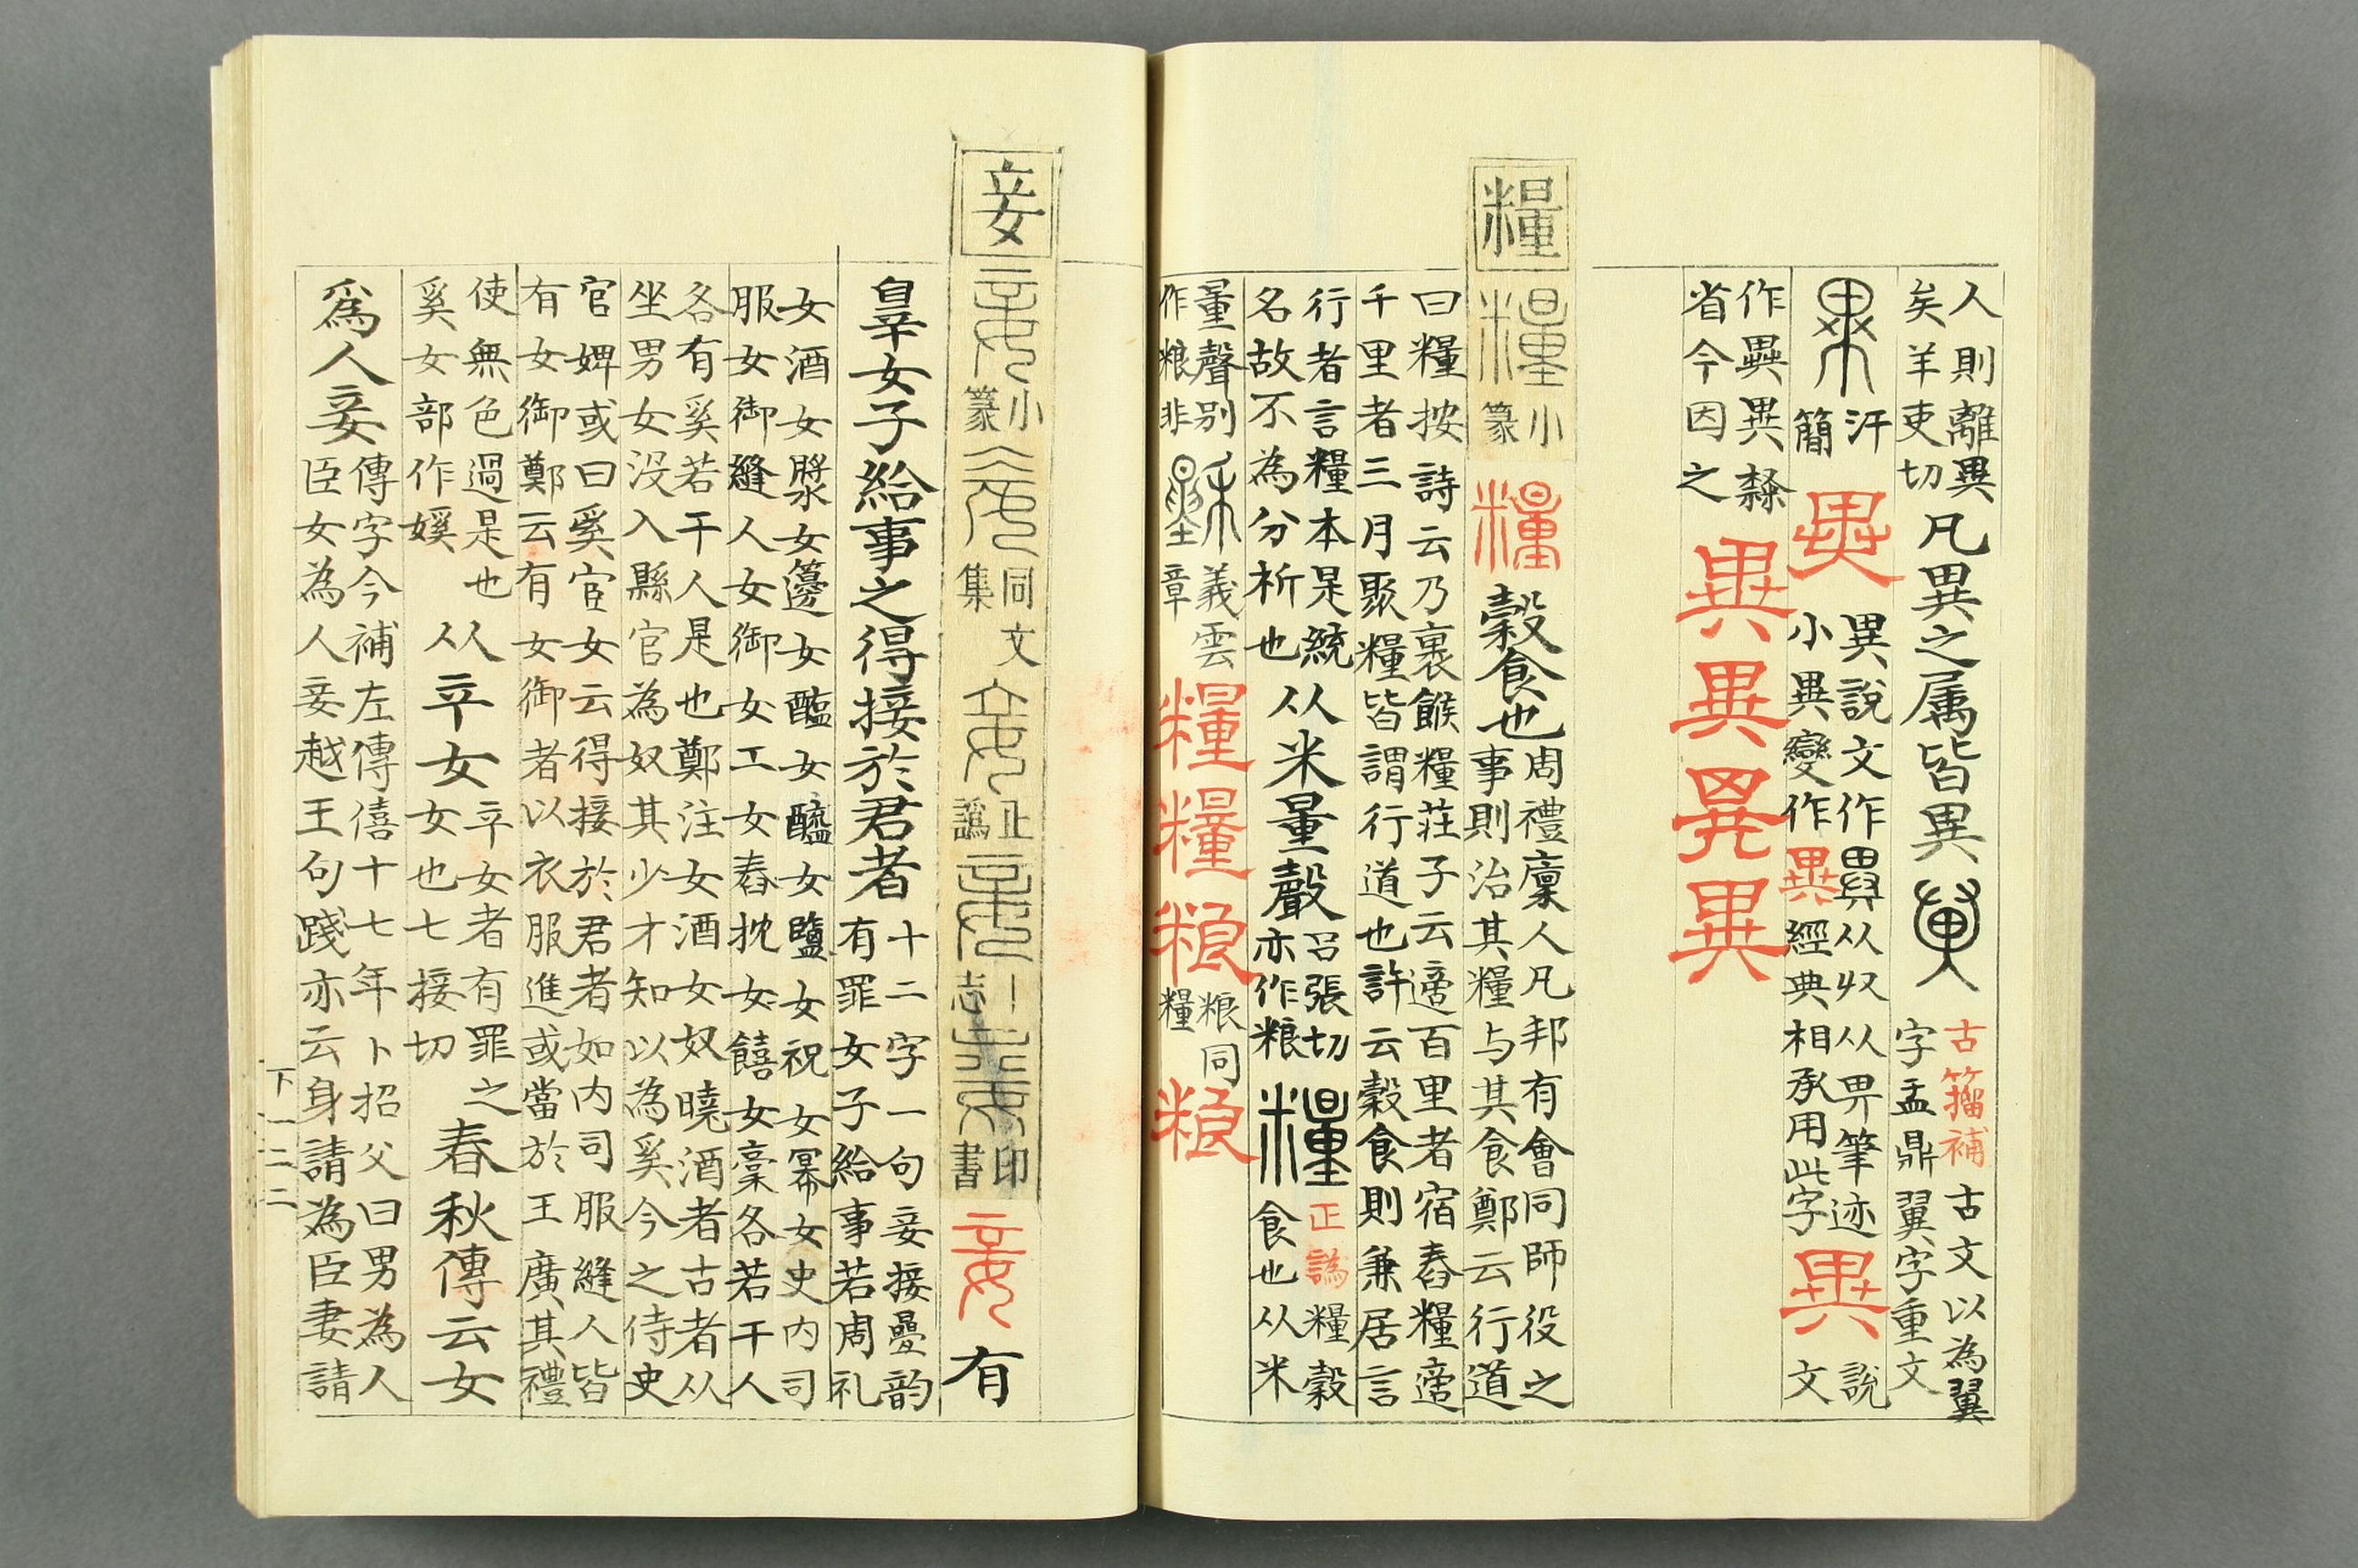 人則離異
矣羊吏切
凡異之属皆異
古籀補古文以為翼
字盂鼎翼字重文
汗
簡
異說文作𢌿从収从畀筆迹
小異變作異經典相承用此字
異
說
文
作異異隸
省今因之
異異異異
糧
小
篆
糧
穀食也
周禮廩人凡邦有會同師役之
事則治其糧与其食鄭云行道
曰糧按詩云乃裹餱糧莊子云適百里者宿舂糧適
千里者三月聚糧皆謂行道也許云穀食則兼居言
行者言糧本是統
名故不為分析也
从米量聲
呂張切
亦作粮
糧
正譌糧穀
食也从米
量聲別
作粮非
義雲
章
糧糧粮
粮同
糧
粮
妾
小
篆
同文
集
正
譌
志
印
書
妾
有
辠女子給事之得接於君者
十二字一句妾接疊韵
有罪女子給事若周礼
女酒女漿女籩女醢女醯女鹽女祝女冪女史内司
服女御縫人女御女工女舂抌女饎女稾各若干人
各有奚若干人是也鄭注女酒女奴曉酒者古者从
坐男女没入縣官為奴其少才知以為奚今之侍史
官婢或曰奚宦女云得接於君者如内司服縫人皆
有女御鄭云有女御者以衣服進或當於王廣其禮
使無色過是也
奚女部作㜎
从䇂女
䇂女者有罪之
女也七接切
春秋傳云女
爲人妾
傳字今補左傳僖十七年卜招父曰男為人
臣女為人妾越王句踐亦云身請為臣妻請
下一二二